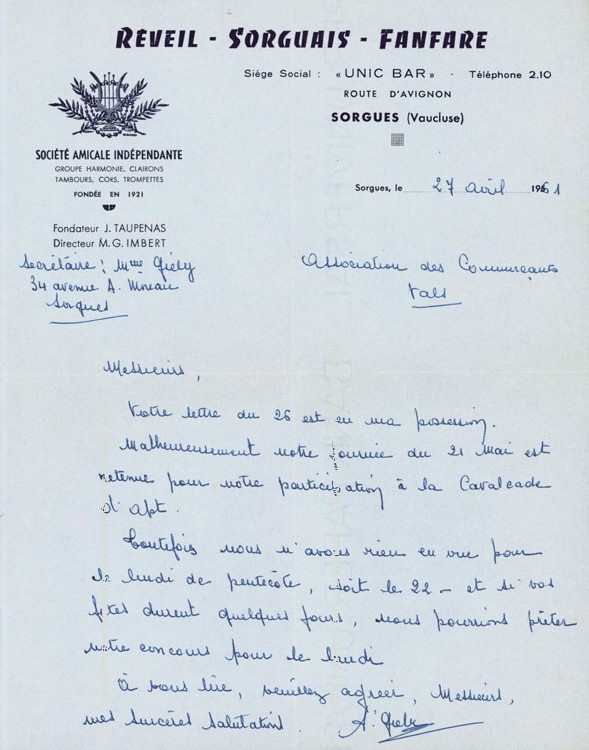 RÉVEIL - SORGUAIS - FANFARE
Siège Social : « UNIC BAR » - Téléphone 2.10
ROUTE D'AVIGNON
SORGUES (Vaucluse)
SOCIÉTÉ AMICALE INDÉPENDANTE
GROUPE HARMONIE, CLAIRONS
TAMBOURS, CORS, TROMPETTES
FONDÉE EN 1921
Sorgues, le 27 avril 1961
Fondateur J. TAUPENAS
Directeur M. G. IMBERT
Secrétaire : Mme Giély
34 avenue A. Moreau
Sorgues
Association des Commerçants
Vals
Messieurs,
Votre lettre du 26 est en ma possession.
Malheureusement notre journée du 21 Mai est
retenue pour notre participation à la Cavalcade
d'Apt.
Toutefois nous n'avons rien en vue pour
le lundi de pentecôte, soit le 22 - et si vos
fetes durent quelques jours, nous pourrions prêter
notre concours pour le lundi
À vous lire, veuillez agréer, Messieurs,
mes sincères salutations. A. Giély